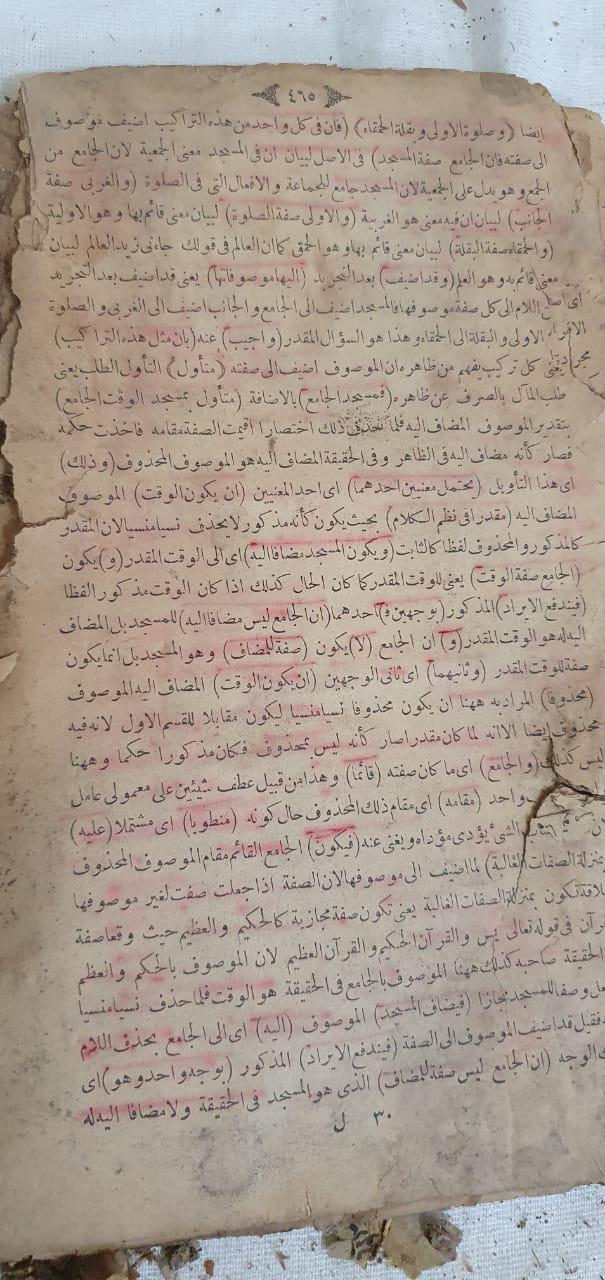 ٤٦٥
ايضا (وصلوة الاولى وبقلة الحمقاء) (فان فى كل واحد من هذه التراكيب اضيف موصوف
الى صفته فان الجامع صفة المسجد) فى الاصل لبيان ان فى المسجد معنى الجمعية لان الجامع من
الجمع وهو يدل على الجمعية لان المسجد جامع للجماعة والافعال التى فى الصلوة (والغربى صفة
الجانب) لبيان ان فيه معنى هو الغربية (والاولى صفة الصلوة) لبيان معنى قائم بها وهو الاولية
(والحمقاء صفة البقلة) لبيان معنى قائم بها وهو الحمق كما ان العالم فى قولك جاءنى زيد العالم لبيان
معنى قائم به وهو العلم (وقد اضيف) بعد التجريد (اليها موصوفاتها) يعنى قد اضيف بعد التجريد
اى اصل اللام الى كل صفة موصوفها فالمسجد اضيف الى الجامع والجانب اضيف الى الغربى والصلوة
الاولى والبقلة الى الحمقاء وهذا هو السؤال المقدر (واجيب) عنه (بان مثل هذه التراكيب)
يعنى كل تركيب يفهم من ظاهره ان الموصوف اضيف الى صفته (متأول) التأول الطلب يعنى
طلب المآل بالصرف عن ظاهره (فمسجد الجامع) بالاضافة (متأول بمسجد الوقت الجامع)
بتقدير الموصوف المضاف اليه فلما حذف ذلك اختصارا اقيمت الصفة مقامه فاخذت حكمه
فصار كأنه مضاف اليه فى الظاهر وفى الحقيقة المضاف اليه هو الموصوف المحذوف (وذلك)
اى هذا التأويل (يحتمل معنيين احدهما) اى احد المعنيين (ان يكون الوقت) الموصوف
المضاف اليه (مقدرا فى نظم الكلام) بحيث يكون كأنه مذكور لا يحذف نسيا منسيا لان المقدر
كالمذكور والمحذوف لفظا كالثابت (ويكون المسجد مضافا اليه) اى الى الوقت المقدر (و) يكون
(الجامع صفة الوقت) يعنى للوقت المقدر كما كان الحال كذلك اذا كان الوقت مذكورا لفظا
(فيندفع الايراد) المذكور (بوجهين) احدهما (ان الجامع ليس مضافا اليه) للمسجد بل المضاف
اليه له هو الوقت المقدر (و) ان الجامع (لا) يكون (صفة للمضاف) وهو المسجد بل انما يكون
صفة للوقت المقدر (وثانيهما) اى ثانى الوجهين (ان يكون الوقت) المضاف اليه الموصوف
(محذوفا) المراد به ههنا ان يكون محذوفا نسيا منسيا ليكون مقابلا للقسم الاول لانه فيه
محذوف ايضا الا انه لما كان مقدرا صار كأنه ليس بمحذوف فكان مذكورا حكما وههنا
ليس كذلك (والجامع) اى ما كان صفته (قائما) وهذا من قبيل عطف شيئين على معمولى عامل
واحد (مقامه) اى مقام ذلك المحذوف حال كونه (منطويا) اى مشتملا (عليه)
الشئ يؤدى مؤداه ويغنى عنه (فيكون) الجامع القائم مقام الموصوف المحذوف
بمنزلة الصفات الغالبة) لما اضيف الى موصوفها لان الصفة اذا جعلت صفت لغير موصوفها
تكون بمنزلة الصفات الغالبة يعنى تكون صفة مجازية كالحكيم والعظيم حيث وقعا صفة
فى قوله تعالى يس والقرآن الحكيم والقرآن العظيم لان الموصوف بالحكم والعظم
الحقيقة صاحبه كذلك ههنا الموصوف بالجامع فى الحقيقة هو الوقت فلما حذف نسيا منسيا
وصفا للمسجد مجازا (فيضاف المسجد) الموصوف (اليه) اى الى الجامع بحذف اللام
فقيل قد اضيف الموصوف الى الصفة (فيندفع الايراد) المذكور (بوجه واحد وهو) اى
الوجه (ان الجامع ليس صفة للمضاف) الذى هو المسجد فى الحقيقة ولا مضافا اليه له
٣٠ ل